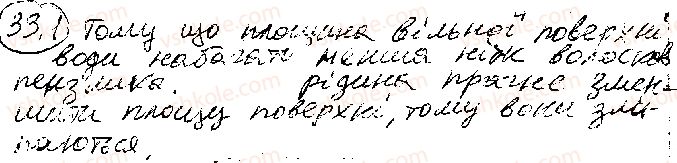 33.1 Тому що площина вільної поверхні
води набагато менша ніж волосків
пензлика. рідина прагне змен-
шити площу поверхні, тому вони злі-
паються.